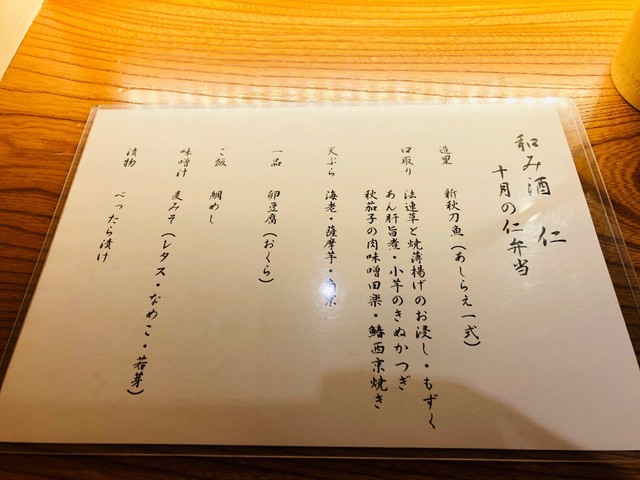 和み酒 仁
十月の仁弁当
造里 新秋刀魚(あしらえ一式)
口取り 法連草と焼薄揚げのお浸し・もずく
あん肝旨煮・小芋のきぬかつぎ
秋茄子の肉味噌田楽・鰆西京焼き
天ぷら 海老・薩摩芋・
一品 卵豆腐(おくら)
ご飯 鯛めし
味噌汁 麦みそ(レタス・なめこ・若芽)
漬物 べったら漬け